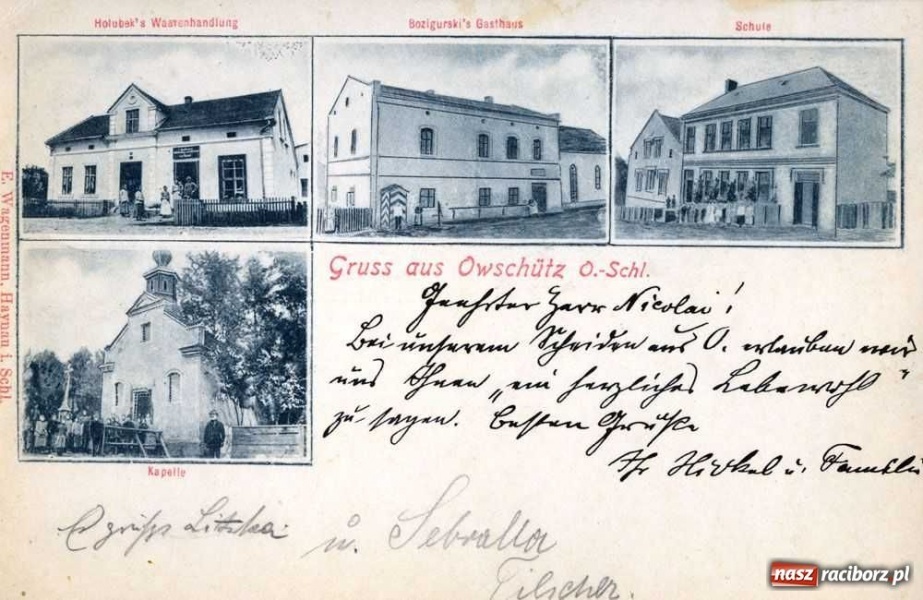 Holubek's Waarenhandlung
Bozigurski's Gasthaus
Schule
E. Wagenmann, Haynau i. Schl.
Gruss aus Owschütz O.-Schl.
Geehrter Herr Nicolai!
Bei unserem Scheiden aus O. erlauben wir
uns Ihnen „ein herzliches Lebewohl"
zu sagen. Besten Gruß
Ihr u. Familie
Kapelle
u.
Tilscher.
nasz raciborz pl